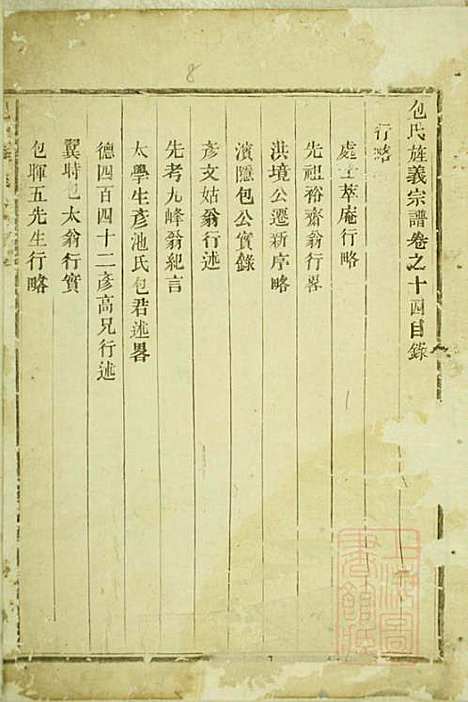 包氏旌義宗譜卷之十四目錄
行略
處士萃庵行略
先祖裕齋翁行畧
洪境公遷新序略
濱隱包公實錄
彥文姑翁行述
先考九峰翁紀言
太學生彥池氏包君述畧
德四百四十二彥高兄行述
翼時包太翁行實
包暉五先生行略
8
上海圖書館藏